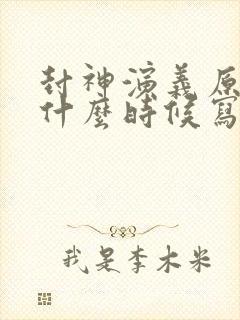 封神演義原
什麼時候寫
我是李木米